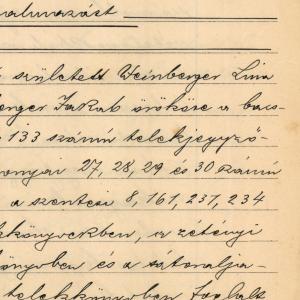 született Weinberger Lina
berger Jakab örököse a bacs-
133 számú telekjegyző-
27, 28, 29 és 30 számú
a szentesi 8, 161, 231, 234
könyvekben, a zétényi
könyvben és a sátoralja-
telekkönyvben